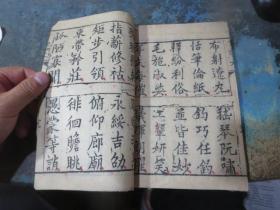 布射遼丸嵇琴阮嘯
恬筆倫紙鈞巧任釣
釋紛利俗並皆佳妙
毛施淑姿工顰妍笑
指薪修祜永綏吉劭
矩步引領俯仰廊廟
束帶矜莊徘徊瞻眺
孤陋寡聞愚蒙等誚